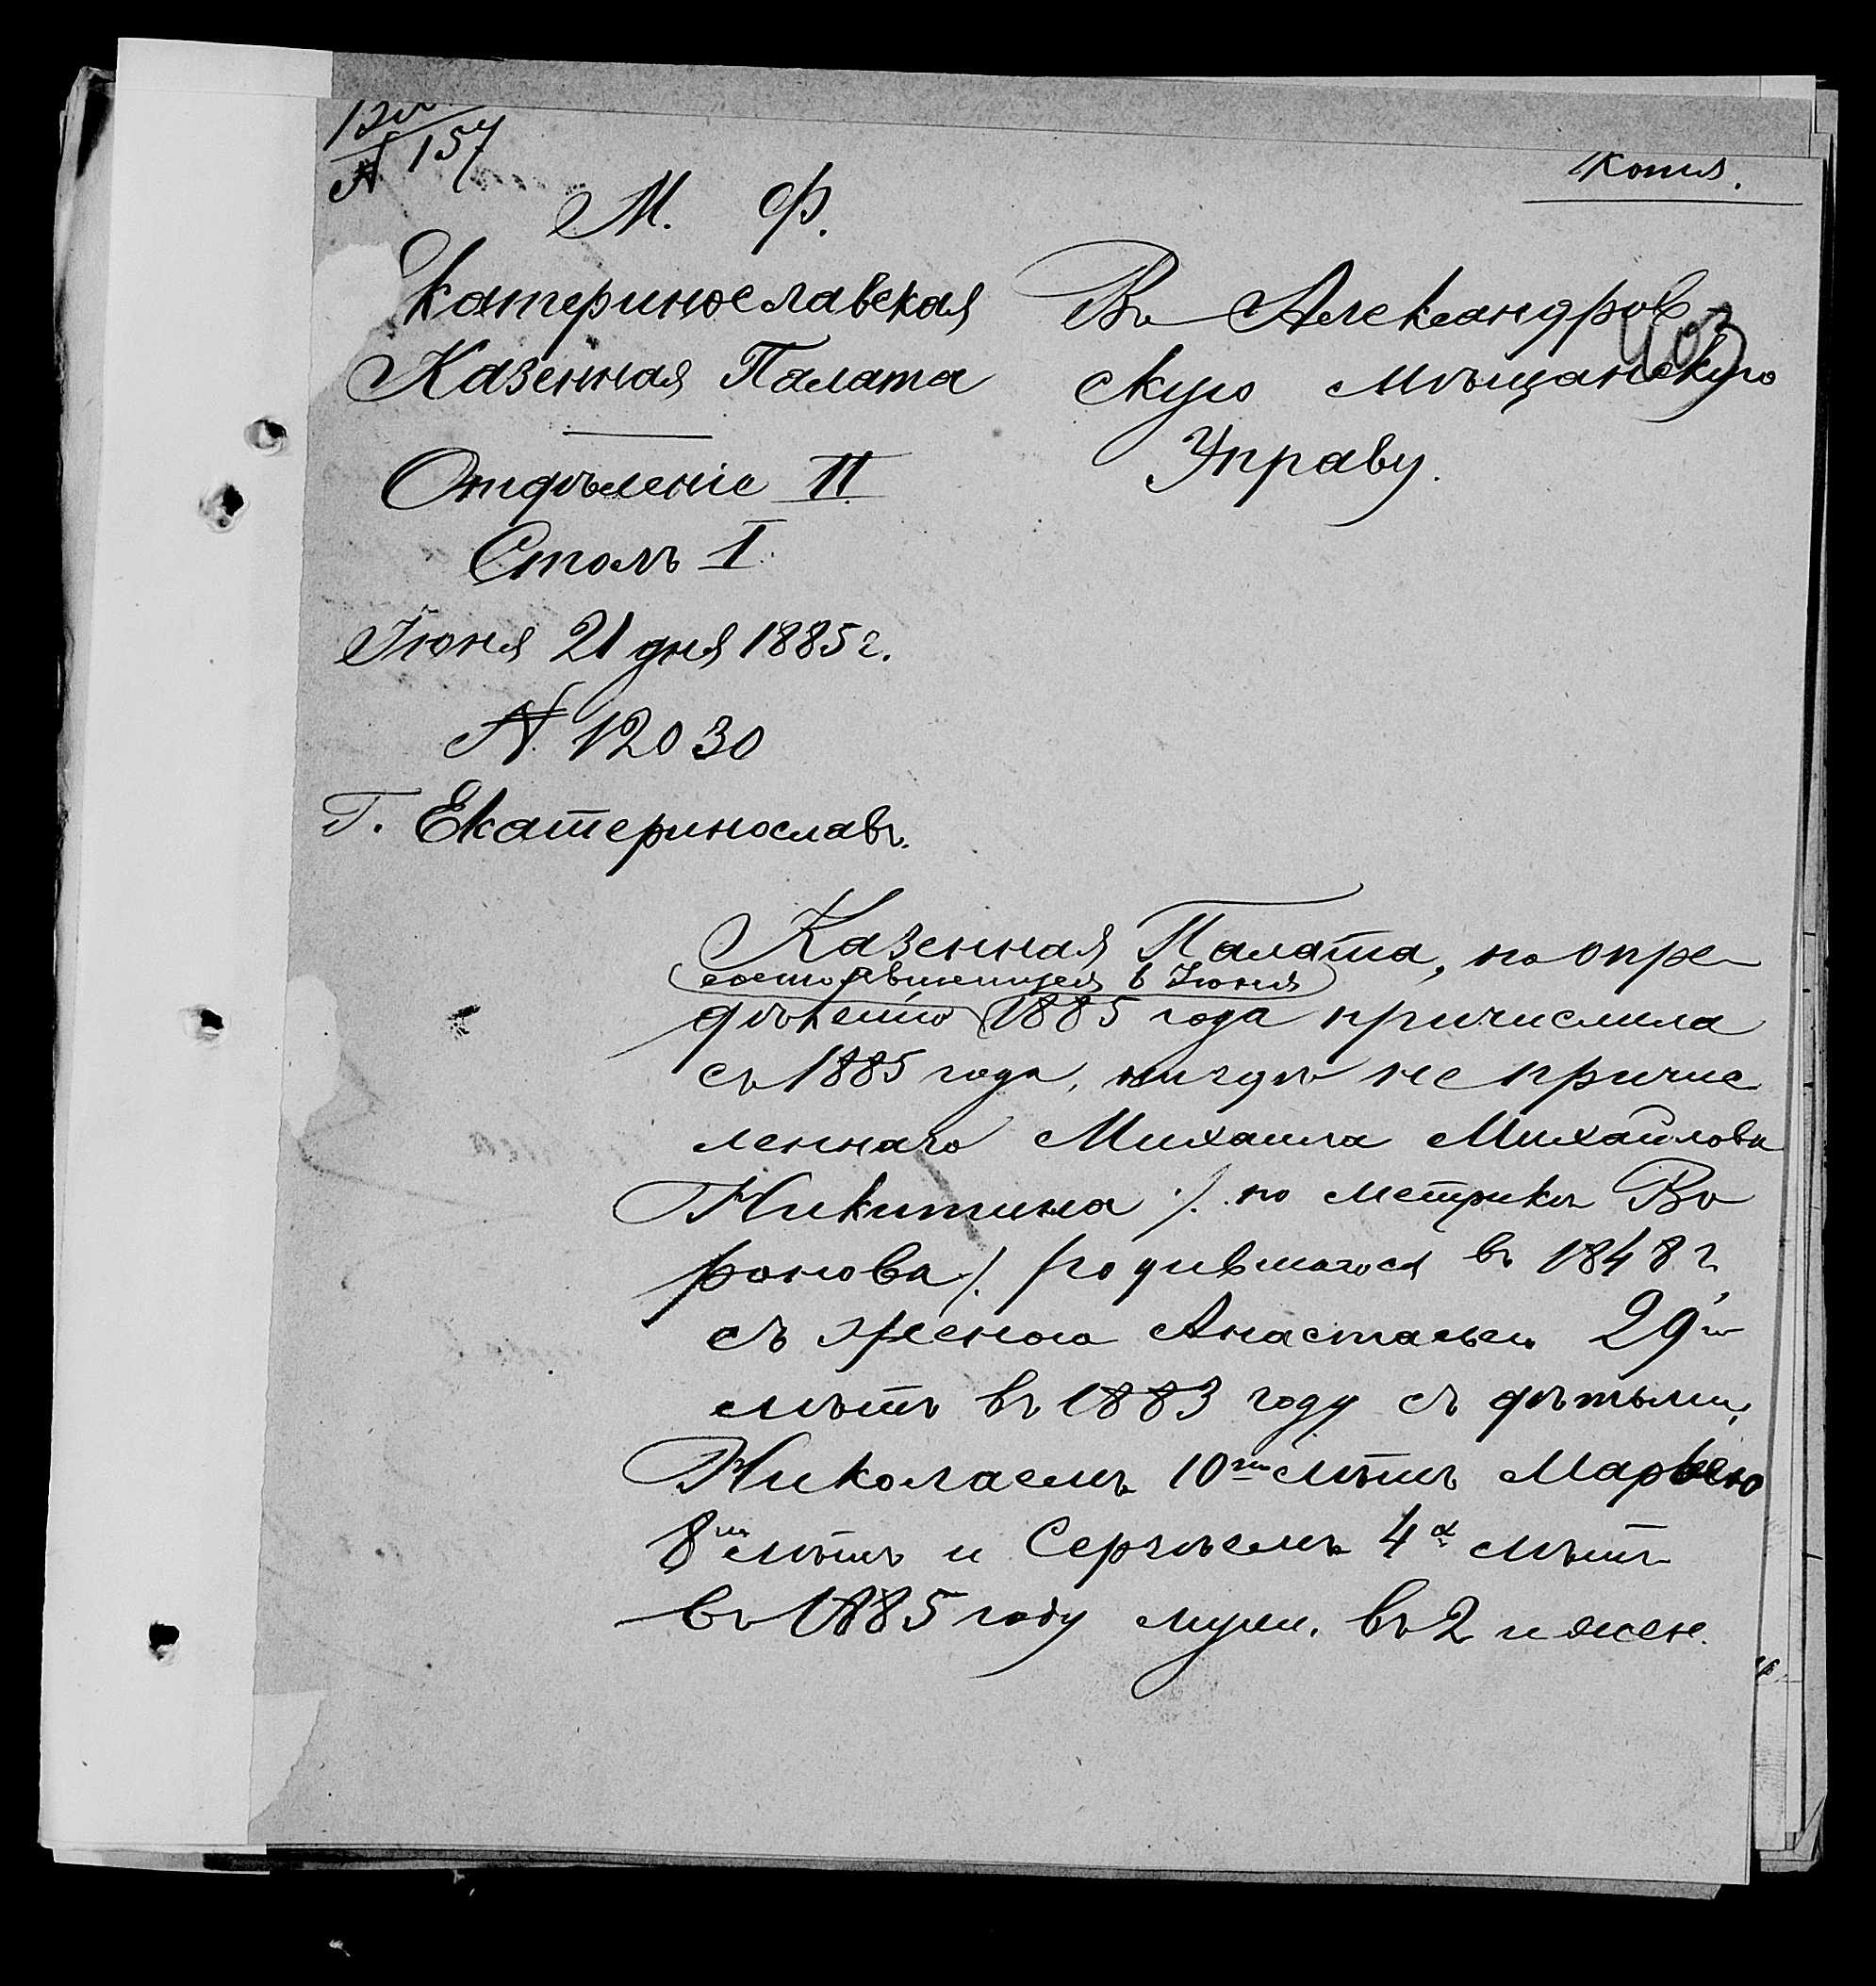 № 157
Копія.
М. Ф.
Екатеринославская
Казенная Палата
Отдѣленіе II
Столъ I.
Іюня 21 дня 1885 г.
№ 12030
Г. Екатеринославъ.
Въ Александров-
скую Мѣщанскую
Управу.
403
Казенная Палата, по опре-
состоявшемуся 6 Іюня
дѣленію 1885 года причислила
съ 1885 года, нигдѣ не причис
леннаго Михаила Михайлова
Никитина /. по метрикѣ Во
ронова ./. родившагося въ 1848 г,
съ женою Анастасьею 29ти
лѣтъ въ 1883 году съ дѣтьми,
Николаемъ 10ти лѣтъ Марьею
8ми лѣтъ и Сергѣемъ 4х лѣтъ
въ 1885 году муж. въ 2 и жен.